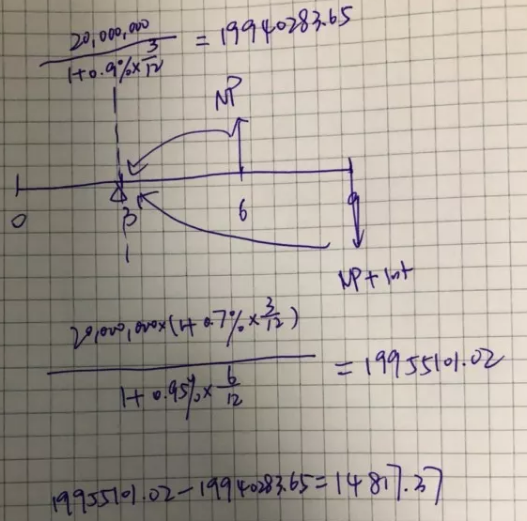 20,000,000 / 1+0.9%×3/12 = 19940283.65
NP
0 3 6 9
NP+Int
20,000,000×(1+0.7%×3/12) / 1+0.95%×6/12 = 19955101.02
19955101.02-19940283.65=14817.37